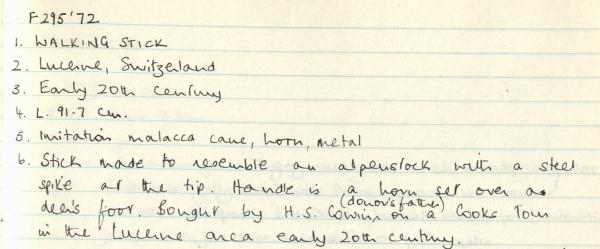 F295'72
1. WALKING STICK
2. Lucerne, Switzerland
3. Early 20th century
4. L. 91.7 cm.
5. Imitation malacca cane, horn, metal
6. Stick made to resemble an alpenstock with a steel
spike at the tip. Handle is a horn set over a
deer's foot. Bought by H.S. (donor's father) on a Cooks Tour
in the Lucerne area early 20th century.